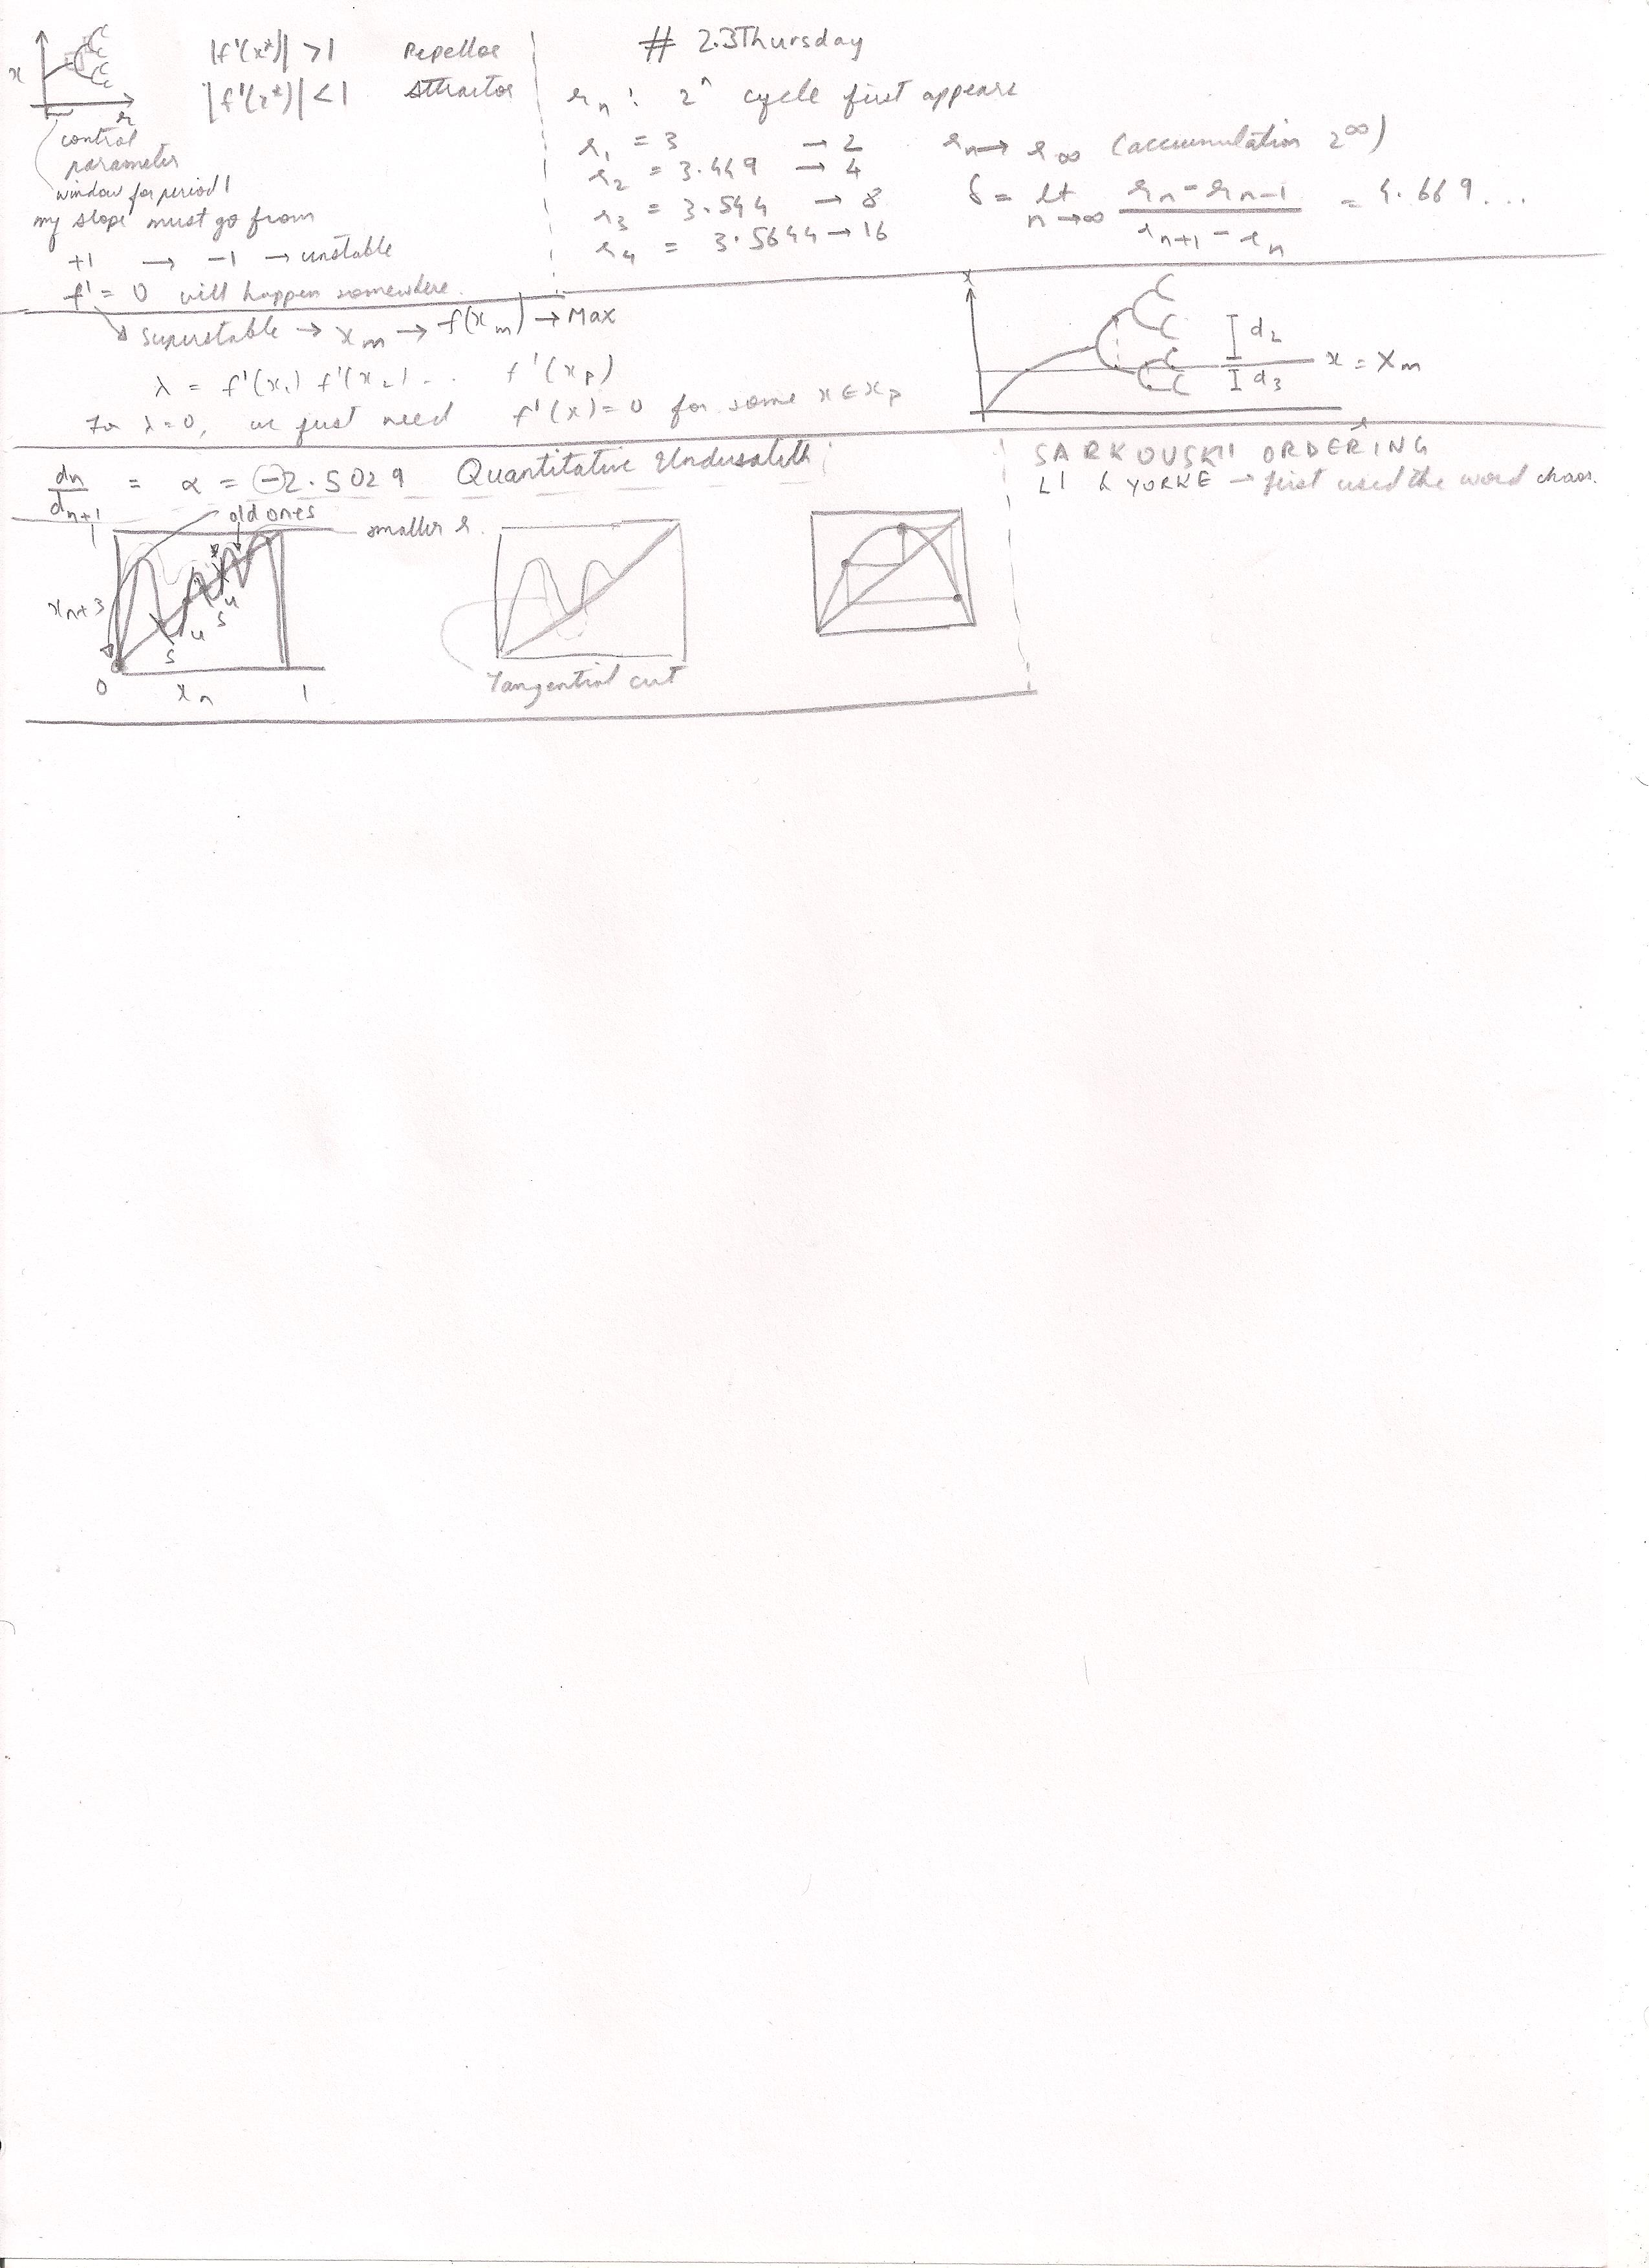 x
r
control
parameter
window for period 1
|f'(x*)| > 1 Repellor
|f'(x*)| < 1 Attractor
my slope must go from
+1 → -1 → unstable
f' = 0 will happen somewhere.
# 2.3 Thursday
r_n : 2^n cycle first appears
r_1 = 3 → 2
r_2 = 3.449 → 4
r_3 = 3.544 → 8
r_4 = 3.5644 → 16
r_n → r_∞ (accumulation 2^∞)
δ = lt n→∞ (r_n - r_n-1)/(r_n+1 - r_n) = 4.669...
Superstable → x_m → f(x_m) → Max
λ = f'(x_1) f'(x_2) .. f'(x_p)
For λ = 0, we just need f'(x) = 0 for some x ∈ x_p
x
d_2
x = X_m
d_3
d_n/d_n+1 = α = -2.5029 Quantitative
old ones
smaller r.
1
x_n+3
s
u
s
u
0
x_n
1
Tangential cut
SARKOVSKII ORDERING
LI & YORKE → first used the word chaos.